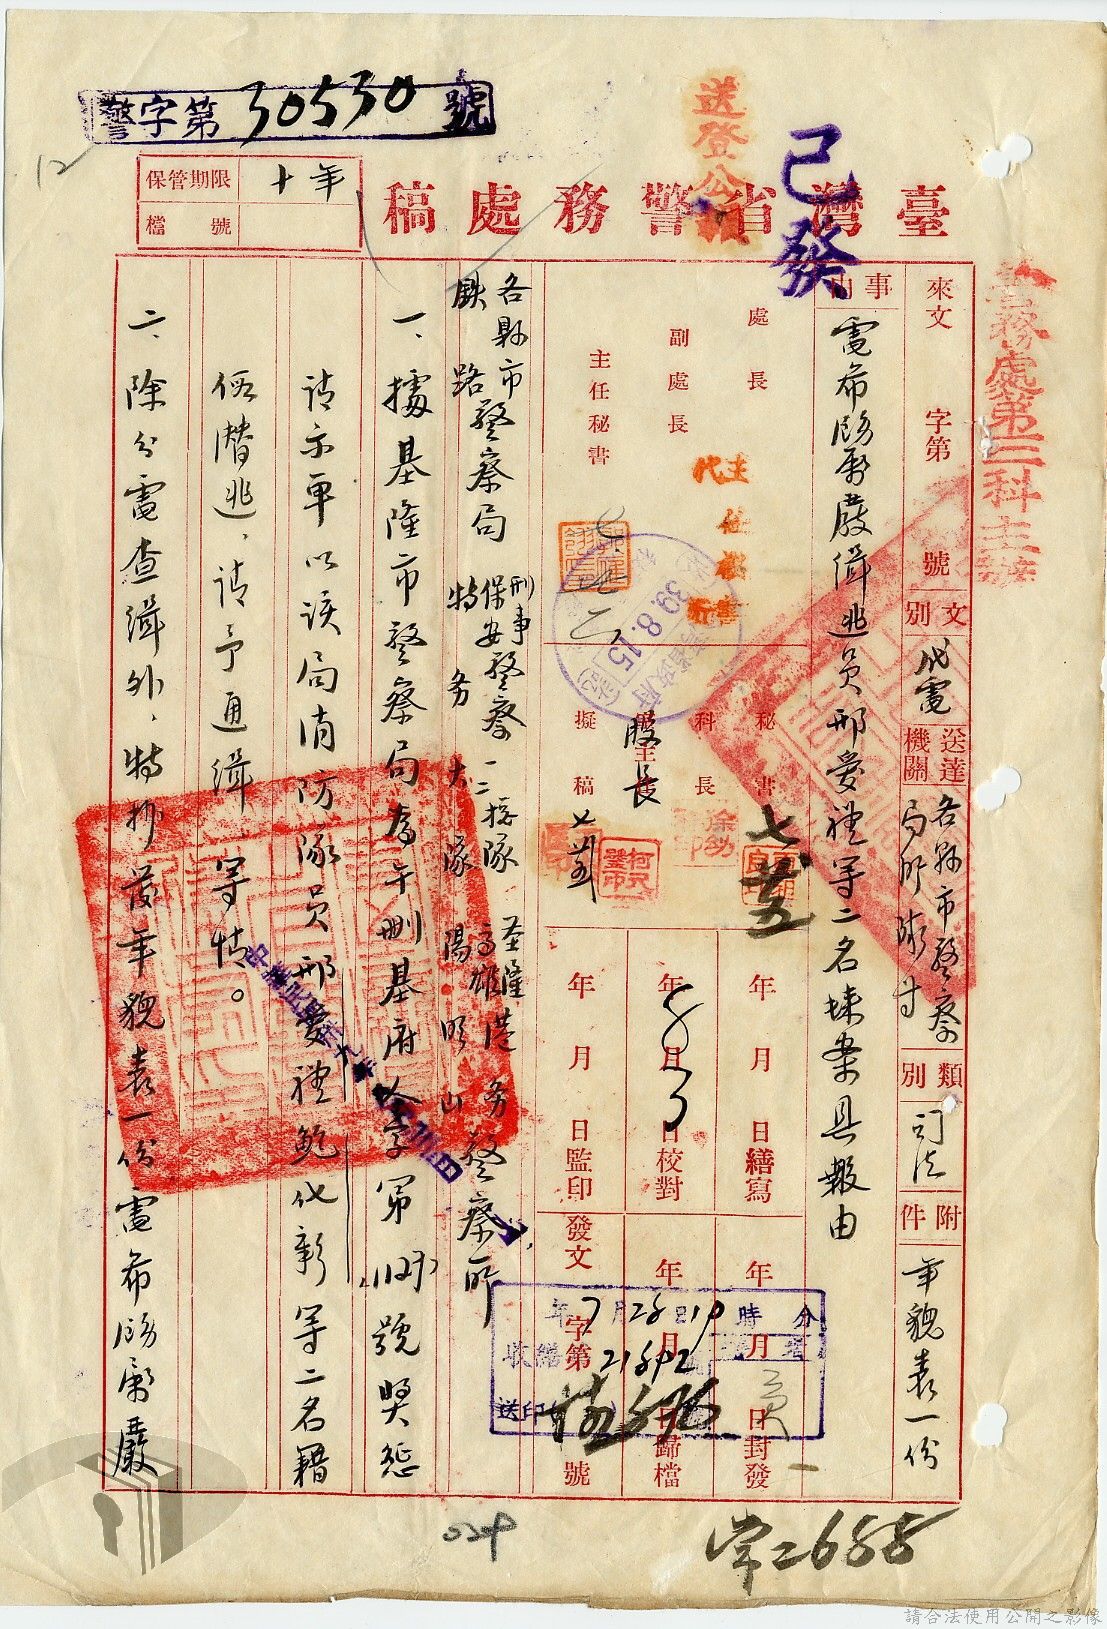 警字第30530號
保管期限 十年
檔號
臺灣省警務處稿
送登公
已發
警務處第三科主辦
來文 字第 號
文別 代電
送達機關 各縣市警察局所隊廿
類別 司法
附件 年貌表一份
事由
電希飭屬嚴緝逃員邢愛禮等二名歸案具報由
處長
副處長
主任秘書
秘書
科長
股長
擬稿
39.8.15
年 月 日繕寫
年 月 日校對
年 月 日監印
年 月 日封發
年 月 日歸檔
發文 字第 號
年7月28日10時 分
21892
各縣市警察局 刑事保安警察一二總隊 基隆高雄港務警察所
鐵路特務大隊 陽明山
一、據基隆市警察局 午刪基府人字第 號獎懲
請示單以該局消防隊員邢愛禮鮑代新等二名籍
假潛逃,請予通緝,等情。
二、除分電查緝外,特抄發年貌表一份電希飭屬嚴
024
請合法使用公開之影像